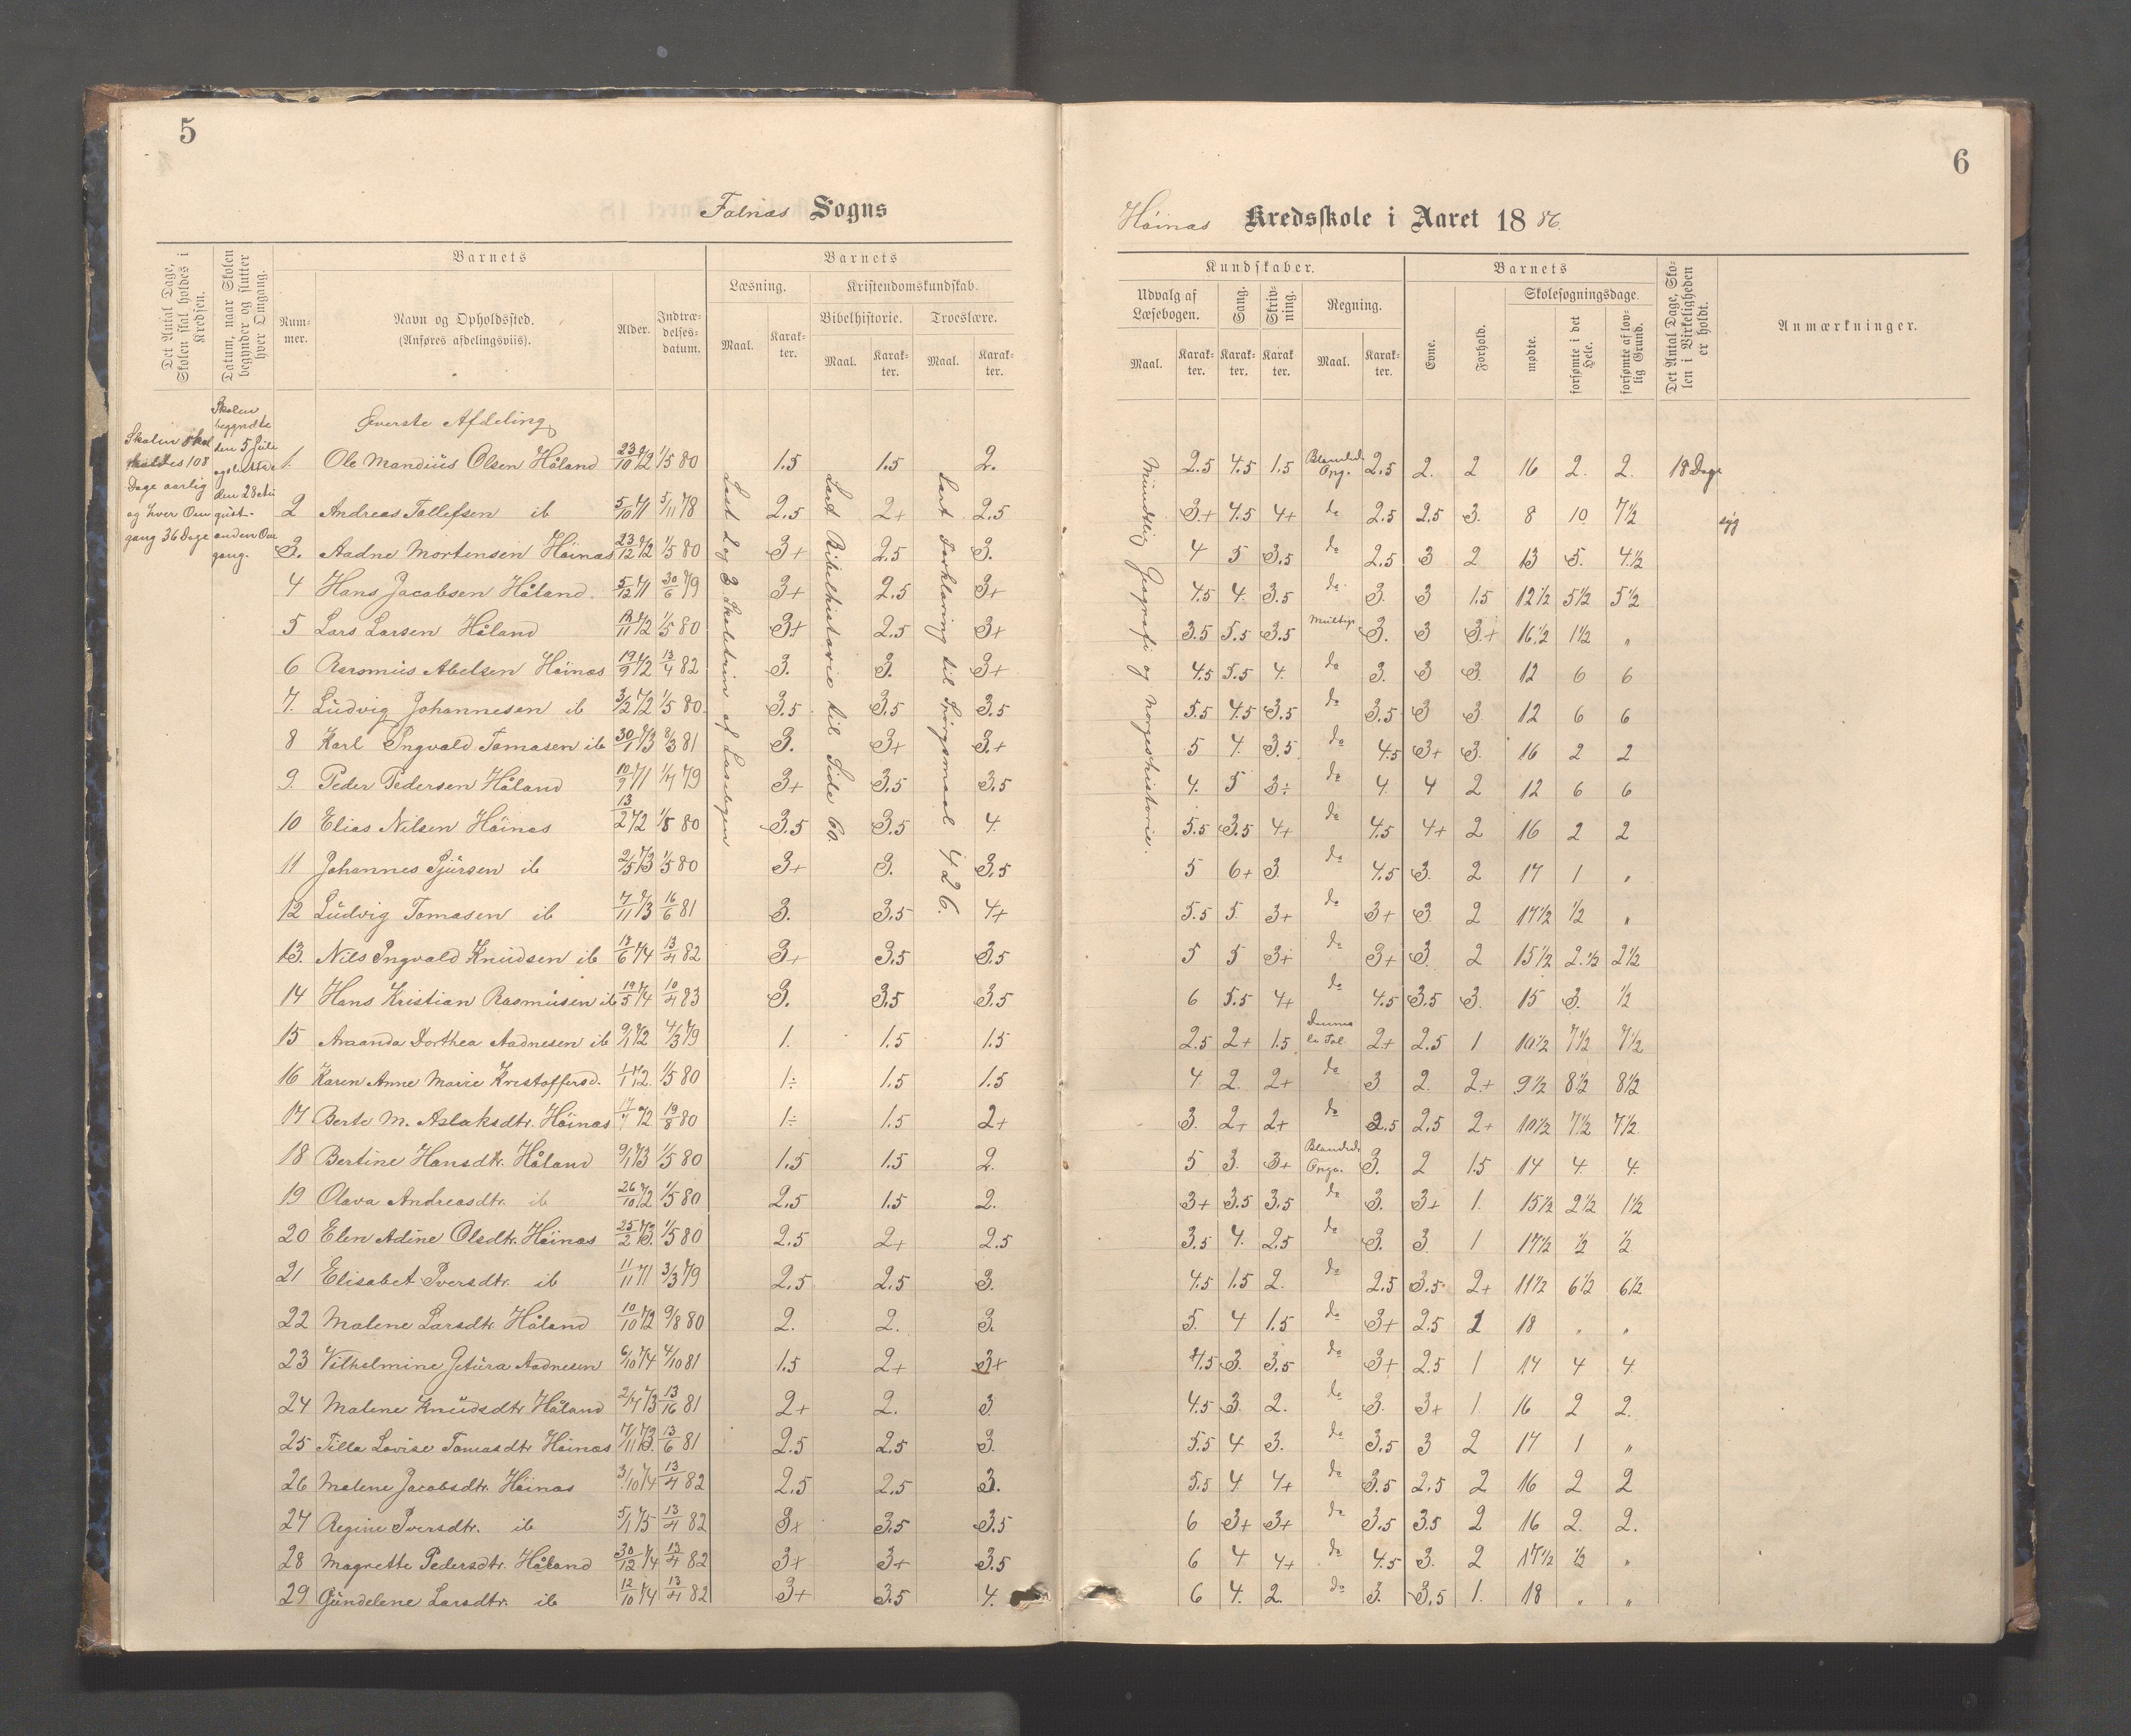 5
Falnæs Sogns
Det Antal Dage, Skolen skal holdes i Kredsen.
Datum, naar Skolen begynder og slutter hver Omgang.
Barnets
Num-mer.
Navn og Opholdssted.
(Anføres afdelingsviis).
Alder.
Indtræ-delses-datum.
Barnets
Læsning.
Maal.
Karak-ter.
Kristendomskundskab.
Bibelhistorie.
Maal.
Karak-ter.
Troeslære.
Maal.
Karak-ter.
Skolen skal
holdes 108
Dage aarlig
og hver Om
gang 36 Dage
Skolen
begyndte
den 5 Juli
og sluttede
den 28 Au
gust
anden Om
gang.
Øverste Afdeling
Læst 2 og 3 Skoletrin af Læsebogen
Læst Bibelhistorie til Side 60.
Læst Forklaring til Spørgsmaal 426.
1. Ole Mandius Olsen Håland 23/10 72 1/5 80 1.5 1.5 2.
2 Andreas Tollefsen ib 5/10 71 5/11 78 2.5 2+ 2.5
3. Aadne Mortensen Höinæs 23/12 72 1/5 80 3+ 2.5 3.
4 Hans Jacobsen Håland. 5/12 71 30/6 79 3+ 2.5 3+
5 Lars Larsen Håland 1/5 80 3+ 2.5 3+
6 Rasmus Abelsen Höinæs 19/9 72 13/4 82 3. 3. 3+
7. Ludvig Johannesen ib 3/2 72 1/5 80. 3.5 3.5 3.5
8 Karl Ingvald Tomasen ib 30/1 73 8/3 81 3. 3+ 3+
9. Peder Pedersen Håland 10/9 71 1/7 79 3+ 3.5 3.5
10 Elias Nilsen Höinæs 13/2 72 1/8 80 3.5 3.5 4.
11 Johannes Sjursen ib 2/5 73 1/5 80 3+ 3. 3.5
12 Ludvig Tomasen ib 7/11 73 16/6 81 3. 3.5 4+
13. Nils Ingvald Knudsen ib 13/6 74 13/4 82 3+ 3.5 3.5
14 Hans Kristian Rasmusen ib 19/5 74 10/4 83 3. 3.5 3.5
15 Amanda Dorthea Aadnesen ib 9/1 72 4/3 79 1. 1.5 1.5
16 Karen Anne Marie Kristoffersd. 1/1 72. 1/5 80 1÷ 1.5 1.5
17 Berte M. Aslaksdtr. Höinæs 17/7 72 19/8 80 1÷ 1.5 2+
18 Bertine Hansdtr. Håland 9/1 73 1/5 80 1.5 1.5 2.
19 Olava Andreasdtr. ib 26/10 72 1/5 80 2.5 1.5 2.
20 Elen Adine Olsdtr. Höinæs 25/2 73. 1/5 80 2.5 2+ 2.5
21 Elisabet Iversdtr. ib 11/11 71 3/3 79 2.5 2.5 3.
22 Malene Larsdtr. Håland 10/10 72 9/8 80 2. 2. 3.
23 Vilhelmine Getura Aadnesen 6/10 74 4/10 81 1.5 2+ 3+
24 Malene Knudsdtr Håland 2/7 73 13/16 81 2+ 2. 3
25 Tilla Lovise Tomasdtr Höinæs 17/11 73. 13/6 81 2.5 2.5 3.
26 Malene Jacobsdtr. Höinæs 3/10 74 13/4 82 2.5 2.5 3.
27 Regine Iversdtr. ib 5/1 75 13/4 82 3+ 3.5 3.5
28 Magrette Pedersdtr. Håland 30/12 74 13/4 82 3+ 3+ 3.5
29 Gundelene Larsdtr. ib 12/10 74 13/4 82 3+ 3.5 4.
6
Höinæs Kredsskole i Aaret 1886.
Kundskaber.
Udvalg af Læsebogen.
Maal.
Karak-ter.
Sang.
Karak-ter.
Skriv-ning.
Karak ter
Regning.
Maal.
Karak-ter.
Barnets
Evne.
Forhold.
Skolesøgningsdage.
mødte.
forsømte i det Hele.
forsømte af lov-lig Grund.
Det Antal Dage, Sko-len i Virkeligheden er holdt.
Anmærkninger.
Mundtlig Geografi og Norgeshistorie.
2.5 4.5 1.5 Blanded. Opg. 2.5 2. 2 16 2. 2. 18 Dage
3+ 4.5 4+ do 2.5 2.5 3. 8 10 7 1/2 syg
4 5 3.5 do 2.5 3 2 13 5. 4 1/2
4.5 4. 3.5 do 3. 3 1.5 12 1/2 5 1/2 5 1/2
3.5 5.5 3.5 Multip. 3. 3 3+ 16 1/2 1 1/2 "
4.5 5.5 4. do 3. 3 3. 12 6 6
5.5 4.5 3.5 do 3.5 3 3. 12 6 6
5 4. 3.5 do 4.5 3+ 3. 16 2 2
4. 5 3÷ do 4. 4 2 12 6 6
5.5 3.5 4+ do 4.5 4+ 2 16 2 2
5 6+ 3. do 4.5 3. 2 17 1 "
5.5 5. 3+ do 3+ 3. 2 17 1/2 1/2 "
5 5 3+ do 3+ 3. 2 15 1/2 2 1/2 2 1/2
6 5.5 4+ do 4.5 3.5 3. 15 3. 1/2
2.5 2+ 1.5 2+ 2.5 1 10 1/2 7 1/2 7 1/2
4. 2. 2+ do 3 2. 2+ 9 1/2 8 1/2 8 1/2
3. 2+ 2+ do 2.5 2.5 2+ 10 1/2 7 1/2 7 1/2
5 3. 3+ Blanded. Opga. 3. 2 1.5 14 4. 4.
3+ 3.5 3.5 do 3. 3+ 1. 15 1/2 2 1/2 1 1/2
3.5 4. 2.5 do 3. 3. 1 17 1/2 1/2 1/2
4.5 1.5 2. do 2.5 3.5 2+ 11 1/2 6 1/2 6 1/2
5. 4 1.5 do 3+ 2.5 1 18 " "
4.5 3. 3.5 do 3+ 2.5 1 14 4 4.
4.5 3. 2. do 3. 3+ 1. 16 2 2.
5.5 4 3. do 3.5 3 2 17 1 "
5.5 4 4+ do 3.5 2.5 2 16 2 2
6 3+ 3+ do 3.5 3.5 2 16 2. 2.
6 4. 4+ do 4.5 3. 2 17 1/2 1/2 "
6 4. 2. do 3. 3.5 1. 18 " "